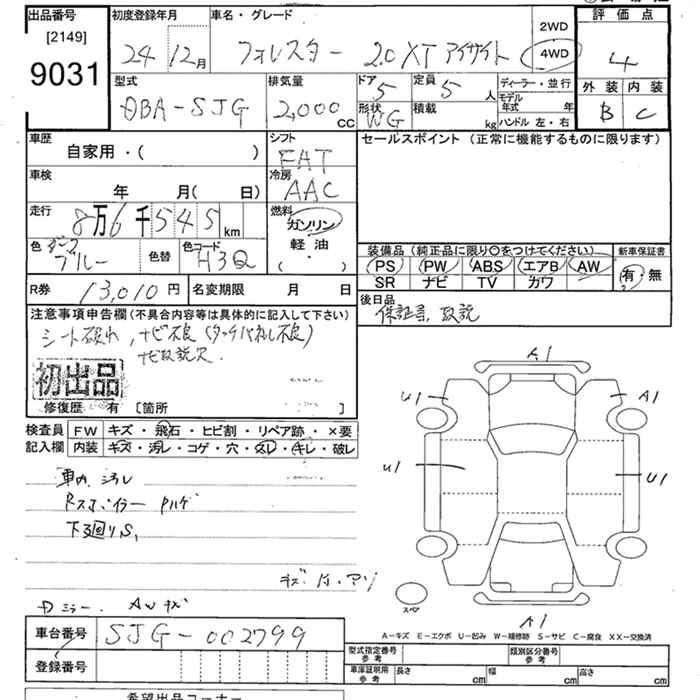 出品番号
[2149]
9031
初度登録年月
24年12月
車名・グレード
フォレスター 2.0XT アイサイト
2WD
4WD
評価点
4
外装 内装
B C
型式
DBA-SJG
排気量
2,000 CC
ドア 5
形状 WG
定員 5 人
積載 kg
ディーラー・並行
モデル年式 年
ハンドル 左・右
車歴
自家用・( )
シフト
FAT
セールスポイント(正常に機能するものに限ります)
車検
年 月( 日)
冷房
AAC
走行
8万6千545km
燃料
ガソリン
軽油
( ・ )
色 ダークブルー
色替
色コード H3Q
装備品(純正品に限り〇をつけてください)
PS PW ABS エアB AW
SR ナビ TV カワ
新車保証書
有・無
R券 13,010円
名変期限 月 日
後日品
保証書、取説
注意事項申告欄(不具合内容等は具体的に記入して下さい)
シート破れ、ナビ不良(タッチパネル不良)
ナビ取説欠.
初出品
修復歴 有 [箇所 ]
検査員記入欄
FW キズ・飛石・ヒビ割・リペア跡・×要
内装 キズ・汚レ・コゲ・穴・スレ・キレ・破レ
車内汚レ
Rスポイラー Pハゲ
下廻りS,
ミラー. AWキズ
A1
U1
A1
U1
U1
A1
スペア
A-キズ E-エクボ U-凹み W-補修跡 S-サビ C-腐食 XX-交換済
車台番号 SJG-002799
登録番号
型式指定番号 参考
類別区分番号 参考
車庫証明用 参考 長さ cm 幅 cm 高さ cm
希望出品コーナー